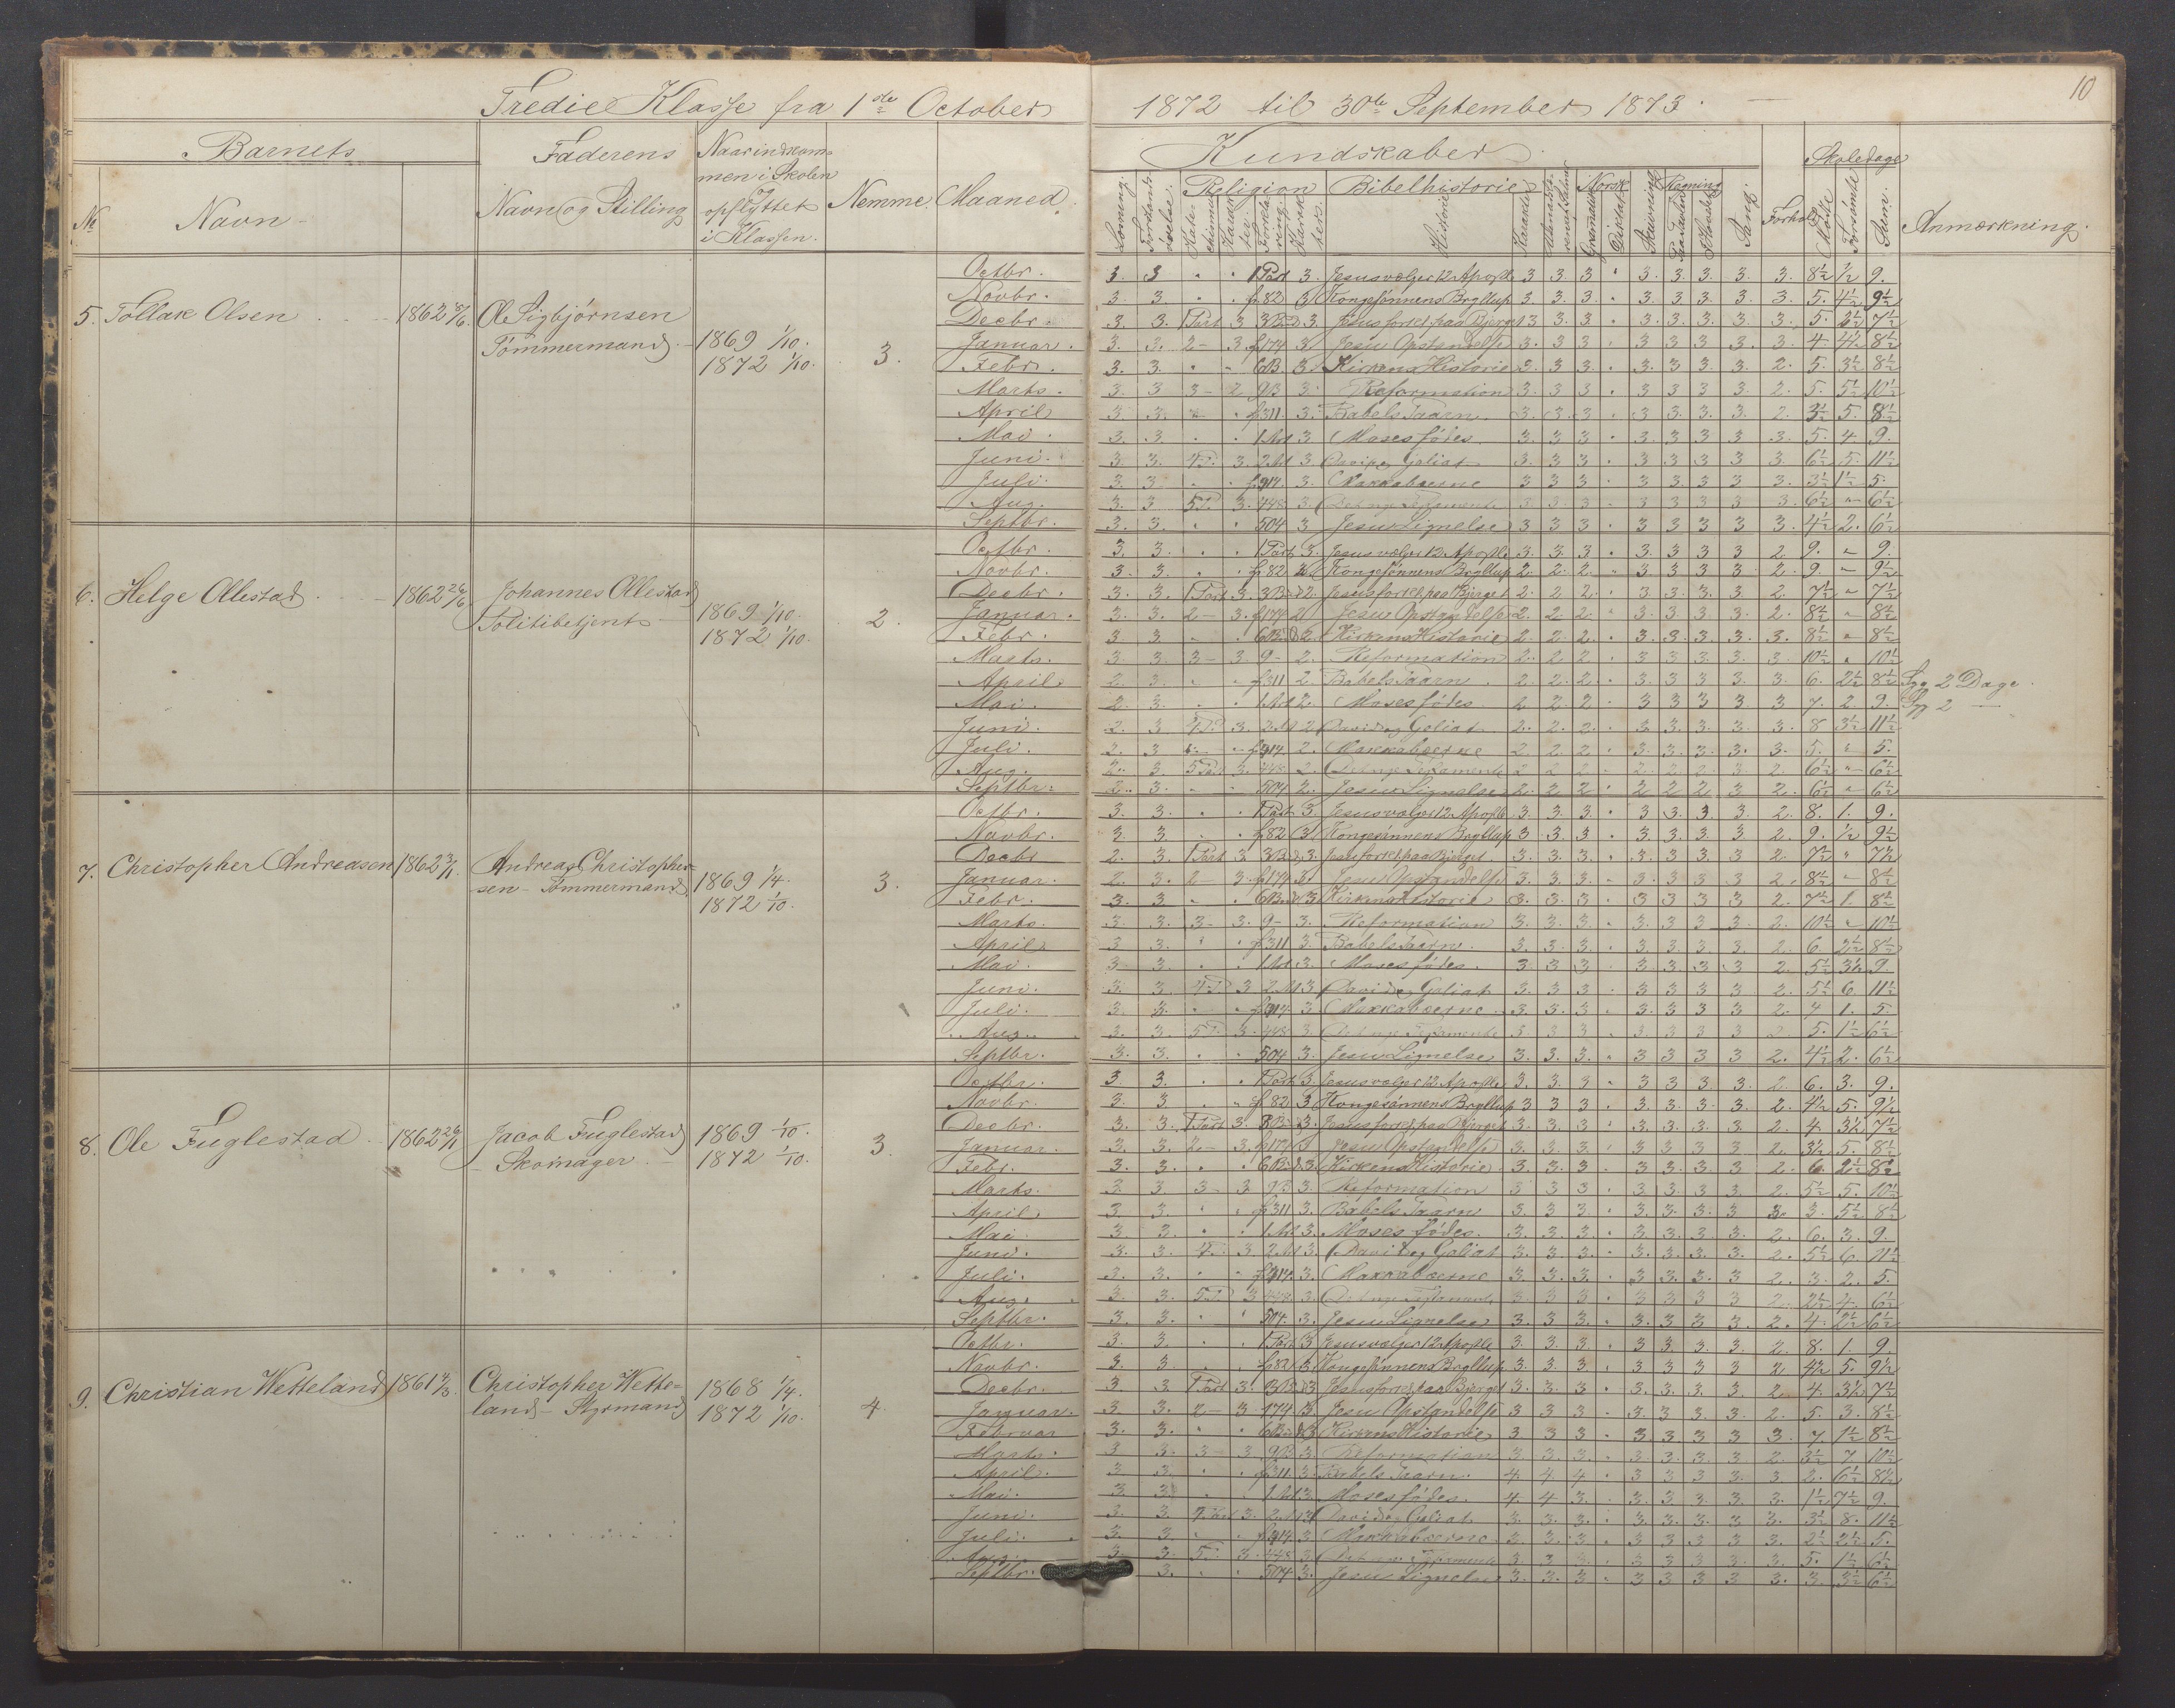 10
Tredie Klasse fra 1ste October 1872 til 30te September 1873.
Barnets
Faderens
Naar indkom-
men i Skolen
og
opflyttet
i Klassen.
Nemme.
Maaned.
№
Navn
Navn og Stilling
Kundskaber.
Skoledage
Religion
Bibelhistorie
Norsk
Regning
Historie
Karakter
Sang.
Forhold
Mödte
Forsömte
Sum.
Anmærkning.
5. Tollak Olsen 1862 8/6. Ole Sigbjørnsen
Tömmermand. 1869 1/10.
1872 1/10. 3.
Octbr. 3. 3 1 Part 3. Jesus vælger 12 Apostle 3. 3. 3 3. 3. 3. 3. 3. 8½ ½ 9.
Novbr. 3. 3. f. 82 3 Kongesönnens Bryllup 3. 3. 3. 3. 3. 3. 3. 3. 5. 4½ 9½
Decbr. 3. 3. 1 Part 3 3. Jesus forkl. paa Bjerget 3 3. 3. 3. 3. 3. 3. 3. 5. 2½ 7½
Januar. 3. 3. 2 - 3. f. 174 3. Jesu Opstandelse 3. 3 3. 3 3 3 3. 3. 4. 4½ 8½
Febr. 3. 3. 6B. 3. Kirkens Historie 3. 3 3. 3. 3 3. 3. 2. 5. 3½ 8½
Marts. 3. 3 3 - 2. 9B 3. Reformation 3. 3 3 3 3 3 3. 2. 5. 5½ 10½
April 3 3. f. 311. 3. Babels Taarn. 3. 3. 3 3 3. 3. 3. 2. 3½ 5. 8½
Mai. 3. 3. 3 Moses födes. 3. 3 3 3. 3. 3 3 3. 5. 4 9.
Juni. 3. 3. 3. 3 David og Goliat 3. 3 3 3 3 3 3 3. 6½ 5. 11½
Juli. 3. 3. 3. Makkabæerne 3 3 3 3 3. 3 3 3. 3½ 1½ 5.
Aug. 3. 3 3. 448 3. 3. 3 3 3 3 3 3 3. 6½ " 6½
Septbr. 3. 3. 504 3 Jesu Lignelse 3 3 3 3 3 3 3 3. 4½ 2. 6½
6. Helge Ollestad 1862 26/6 Johannes Ollestad
Politibetjent 1869 1/10.
1872 1/10. 2.
Octbr. 3. 3. 1 Part 3. Jesus vælger 12 Apostle 3. 3. 3. 3. 3 3 3 2. 9. " 9.
Novbr. 3. 3. f. 82 Kongesönnens Bryllup 2. 2. 2. 3. 3 3 3. 2. 9. " 9½
Decbr. 3. 3. 1 Part 3. 2. Jesus forkl. paa Bjerget 2. 2 2. 3. 3. 3. 3 2. 7½ " 7½
Januar. 3. 3. 2 - 3. f. 174 2 Jesu Opstandelse 2. 2. 2. 3. 3. 3. 3. 2. 8½ " 8½
Febr. 3 3. 2. Kirkens Historie 2. 2. 2. 3. 3. 3. 3. 3. 8½ " 8½
Marts. 3 3. 3 - 3. 9 - 2. Reformation 2. 2 2 3 3 3. 3. 3. 10½ " 10½
April. 2. 3. f. 311 2. Babels Taarn. 2. 2. 2. 3. 3. 3. 3. 3. 6. 2½ 8½ Syg 2 Dage.
Mai. 2. 3. 2. Moses födes. 2 2 2 3 3 3 3 3 7. 2 9. Syg 2 —
Juni. 2. 3 3. 2 David og Goliat 2. 2. 2. 3. 3. 3. 3. 3. 8 3½ 11½
Juli. 2. 3 2. Makkabæerne 2 2. 2 3. 3. 3. 3. 3. 5. " 5.
Aug. 2. 3. 5 Part 3. 448 2. 2 2 2 2. 2. 2. 3. 2. 6½ " 6½
Septbr. 2. 3. 504 2. Jesu Lignelse 2. 2 2 2 2 2 3 2. 6½ " 6½
7. Christopher Andreasen 1862 3/1. Andreas Christopher-
sen - Tömmermand 1869 1/4.
1872 1/10. 3.
Octbr. 3. 3. 1 Part 3 Jesus vælger 12 Apostle 3. 3. 3. 3 3. 3 3 2. 8. 1. 9.
Novbr. 3 3 f. 82 3 Kongesönnens Bryllup 3 3. 3. 3 3. 3. 3 2. 9. ½ 9½
Decbr 2. 3. 1 Part 3 3. Jesus forkl. paa Bjerget. 3. 3. 3. 3. 3. 3. 3 2. 7½ " 7½
Januar. 2. 3. 2 3. f. 174 3 Jesu Opstandelse 3. 3. 3. 3. 3 3 3 2. 8½ " 8½
Febr. 3. 3 3 Kirkens Historie 3. 3. 3. 3 3 3 3 2. 7½ 1. 8½
Marts. 3. 3. 3 - 3. 9 - 3. Reformation 3. 3. 3. 3. 3. 3 3. 2. 10½ " 10½
April 3 3. f. 311 3. Babels Taarn. 3. 3. 3. 3. 3. 3. 3. 2. 6. 2½ 8½
Mai. 3 3. 3. Moses födes. 3. 3 3 3. 3. 3. 3 2. 5½ 3½ 9.
Juni. 3. 3. 3 3 David og Goliat 3. 3. 3 3 3 3 3 2. 5½ 6. 11½
Juli. 3 3. 3 Makkabæerne 3. 3. 3. 3. 3 3 3 2. 4 1. 5.
Aug. 3. 3. 3. 448 3. 3. 3 3 3. 3 3 3 2. 5. 1½ 6½
Septbr. 3. 3. 504 3. Jesu Lignelse 3. 3. 3. 3 3 3 3 2. 4½ 2. 6½
8. Ole Fuglestad 1862 26/11 Jacob Fuglestad
- Skomager. - 1869 1/10.
1872 1/10. 3.
Octbr. 3. 3. 1 Part 3. Jesus vælger 12 Apostle 3. 3. 3 3 3 3. 3. 2. 6. 3. 9.
Novbr. 3. 3 f. 82 3 Kongesönnens Bryllup 3 3 3 3. 3. 3. 3. 2. 4½ 5. 9½
Decbr. 3. 3. 1 Part 3. 3 Jesus forkl. paa Bjerget 3. 3. 3. 3. 3. 3. 3 2. 4 3½ 7½
Januar. 3. 3. 2 - 3. f. 174 3 Jesu Opstandelse 3. 3. 3 3 3 3 3 2. 3½ 5. 8½
Febr. 3. 3. 3 Kirkens Historie 3. 3. 3 3. 3. 3. 3. 2. 6. 2½ 8½
Marts. 3. 3. 3 - 3 9B 3. Reformation 3 3 3 3. 3. 3 3. 2. 5½ 5. 10½
April. 3. 3. f. 311 3. Babels Taarn 3. 3. 3 3. 3. 3. 3 3. 3. 5½ 8½
Mai. 3. 3. 3. Moses födes. 3. 3. 3. 3. 3. 3. 3. 2. 6. 3. 9.
Juni. 3. 3. 3 3. David og Goliat 3. 3. 3 3. 3. 3. 3. 2. 5½ 6. 11½
Juli. 3. 3. 3. Makkabæerne 3. 3. 3. 3 3. 3. 3 2. 3. 2. 5.
Aug. 3. 3. 3 448 3. 3. 3 3 3 3 3 3 2. 2½ 4. 6½
Septbr. 3. 3. 504. 3. Jesu Lignelse 3. 3 3. 3. 3 3 3. 2. 4. 2½ 6½
9. Christian Wetteland 1861 4/3. Christopher Wette-
land - Styrmand 1868 1/4.
1872 1/10. 4.
Octbr. 3. 3. 1 Part 3 Jesus vælger 12 Apostle 3. 3. 3. 3 3. 3. 3 2. 8. 1. 9.
Novbr. 3. 3. f. 82 3. Kongesönnens Bryllup 3. 3. 3. 3 3 3 3 2. 4½ 5. 9½
Decbr. 3. 3. 1 Part 3. 3 Jesus forkl. paa Bjerget 3. 3. 3 3. 3. 3. 3 2. 4. 3½ 7½
Januar. 3. 3. 2 - 3. 174 3. Jesu Opstandelse 3 3 3 3. 3 3. 3. 2. 5. 3. 8½
Februar 3. 3. 3 Kirkens Historie 3 3 3 3 3 3 3 3. 7. 1½ 8½
Marts. 3 3. 3 - 3 9B 3. Reformation 3 3. 3. 3. 3. 3 3 2. 3½ 7 10½
April. 3. 3. f. 311. 3. Babels Taarn. 4. 4. 4 3 3 3 3. 3 2. 6½ 8½
Mai. 3. 3 3. Moses födes. 4. 4 3. 3. 3 3. 3. 3. 1½ 7½ 9.
Juni. 3. 3. 3. 3 David og Goliat 3. 3. 3. 3. 3. 3. 3. 3. 3½ 8. 11½
Juli. 3. 3 3 Makkabæerne 3. 3. 3 3 3 3 3 3. 2½ 2½ 5.
3. 3. 3. 448 3 3 3 3 3 3 3 3. 3. 5. 1½ 6½
Septbr. 3. 504 3. Jesu Lignelse 3. 3. 3 3 3 3 3 3. 3. 3½ 6½